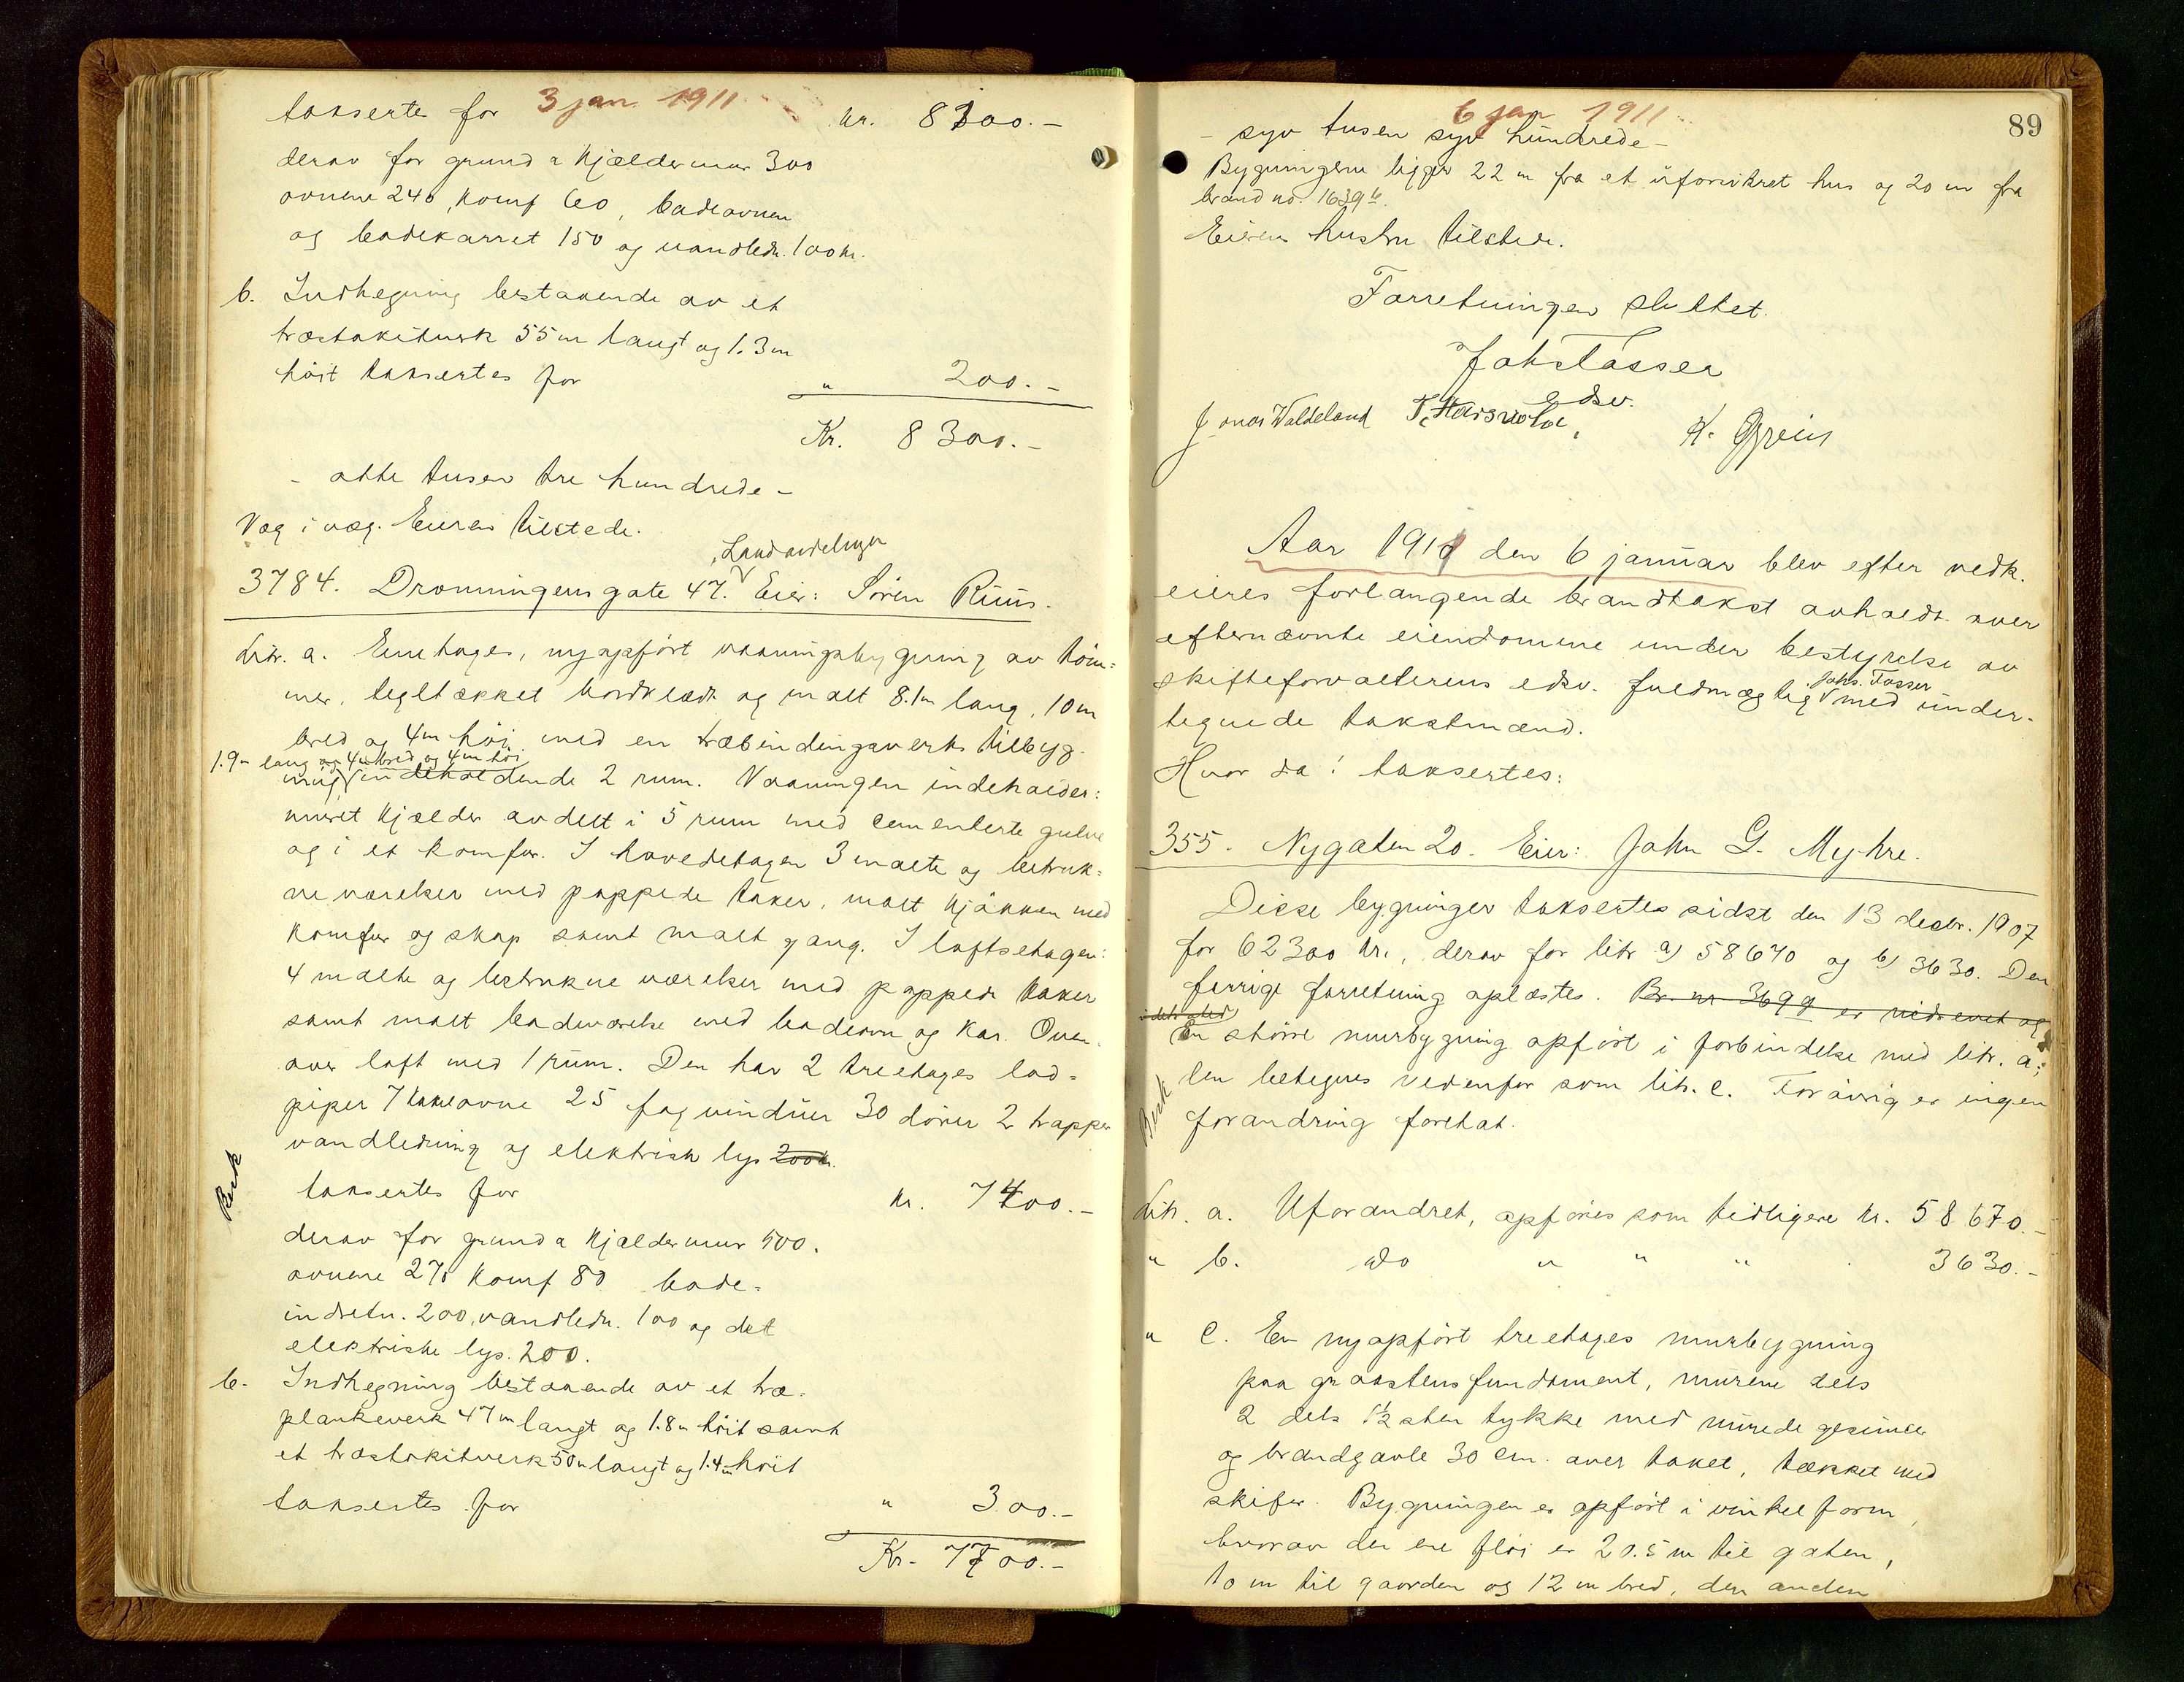 3 jan 1911
taksertes for kr. 8100.-
derav for grund & kjældermur 300
ovnene 240, komf 60, badeovnen
og badekarret 150 og vandledn. 100 kr.
b. Indhegning bestaaende av et
træstakitverk 55 m langt og 1.3 m
høit taksertes for " 200.-
Kr. 8300.-
- otte tusen tre hundrede -
Væg i væg. Eieren tilstede.
Landavdelingen
3784. Dronningensgate 47. Eier: Sören Riis.
Litr. a. Enetages, nyopført vaaningsbygning av töm=
mer, tegltækket bordklædt og malt 8.1 m lang, 10 m
bred og 4 m høi med en træbindingsverks tilbyg-
1.9 m lang og 4 m bred og 4 m høi
ning indeholdende 2 rum. Vaaningen indeholder:
muret kjælder avdelt i 5 rum med cementerte gulve
og i et komfur. I hovedetagen 3 malte og betruk=
ne værelser med pappede taker, malt kjökken med
komfur og skap samt malt gang. I loftsetagen:
4 malte og betrukne værelser med pappede taker
samt malt badeværelse med badeovn og kar. Oven-
over loft med 1 rum. Den har 2 treetages lod=
piper 7 kakelovne 25 fag vinduer 30 dörer 2 trapper
vandledning og elektrisk lys 200 kr.
Besk
taksertes for kr. 7400.-
derav for grund & kjældermur 500.
ovnene 270 komf 80 bade=
indretn. 200, vandledn. 100 og det
elektriske lys. 200.
b. Indhegning bestaaende av et træ-
plankeverk 47 m langt og 1.8 m høit samt
et træstakitverk 50 m langt og 1.4 m høit
taksertes for " 300.-
Kr. 7700.-
89
6 jan 1911
- syv tusen syv hundrede -
Bygningerne ligger 22 m fra et uforsikret hus og 20 m fra
brand no. 1639 b.
Eierens hustru tilstede.
Forretningen sluttet.
Johs Tasser
edsv.
Jonas Waldeland
Aar 1911 den 6 januar blev efter vedk.
eieres forlangende brandtakst avholdt over
efternævnte eiendomme under bestyrelse av
Johs. Tasser
skifteforvalterens edsv. fuldmægtig med under-
tegnede takstmænd.
Hvor da: taksertes:
355. Nygaten 20. Eier: John G. Myhre.
Disse bygninger taksertes sidst den 13 decbr. 1907
for 62300 kr., derav for litr a) 58670 og b) 3630. Den
forrige forretning oplæstes. Br. nr 3699 er nedrevet og
i dets sted
En större murbygning opført i forbindelse med litr. a;
den betegnes nedenfor som litr. c. Forövrig er ingen
Besk
forandring foretat.
Litr. a. Uforandret, opføres som tidligere kr. 58670.-
" b. do " " " 3630.-
" c. En nyopført treetages murbygning
paa graastensfundament, murene dels
2 dels 1½ sten tykke med murede gesimser
og brandgavle 30 cm. over taket, tækket med
skifer. Bygningen er opført i vinkelform,
hvorav den ene fløi er 20.5 m til gaten,
10 m til gaarden og 12 m bred, den anden